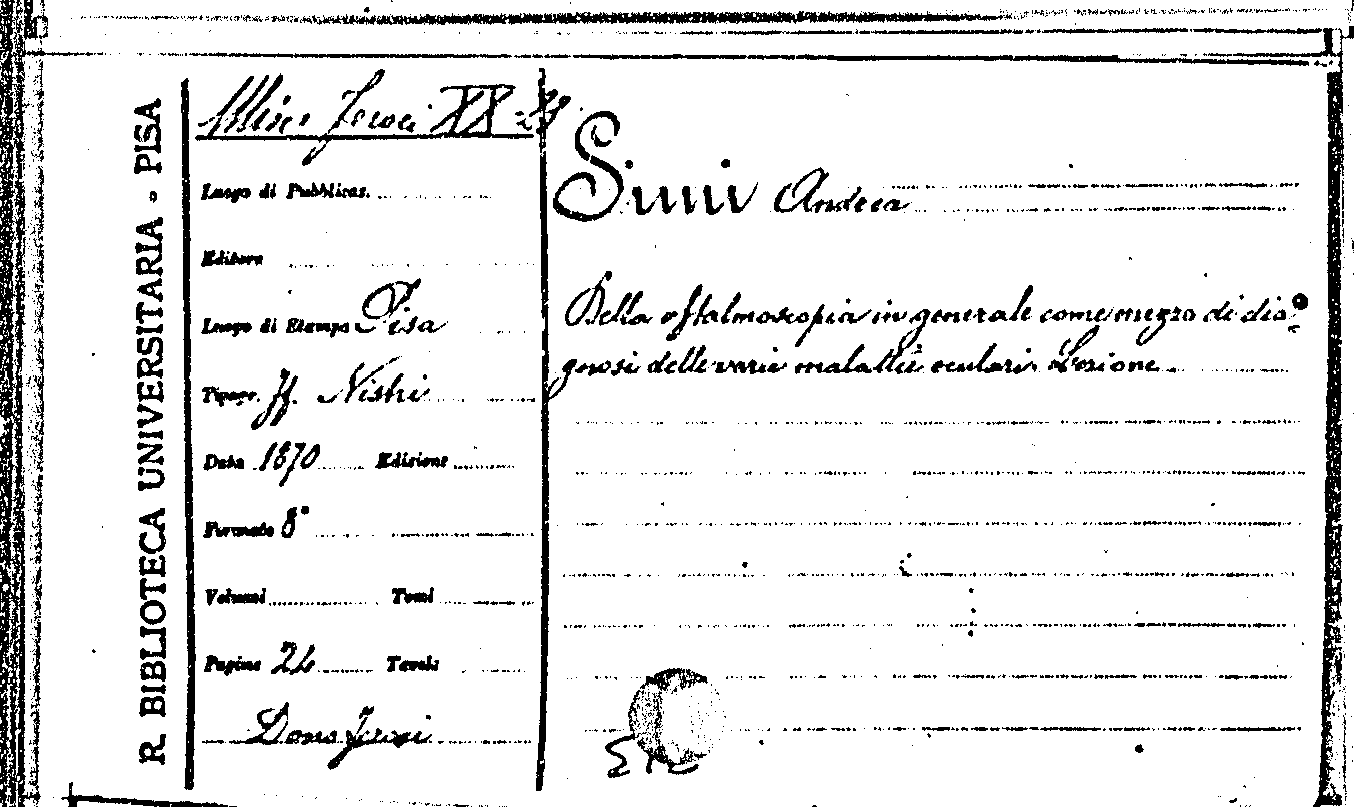 R. BIBLIOTECA UNIVERSITARIA - PISA
Misc. XX - 
Luogo di Pubblicaz.
Editore
Luogo di Stampa Pisa
Tipogr. ff. Nistri
Data 1870 Edizione
Formato 8°
Volumi Tomi
Pagine 24 Tavole
Dono
Simi Andrea
Della oftalmoscopia in generale come mezzo di dia-
gnosi delle varie malattie oculari. Lezione